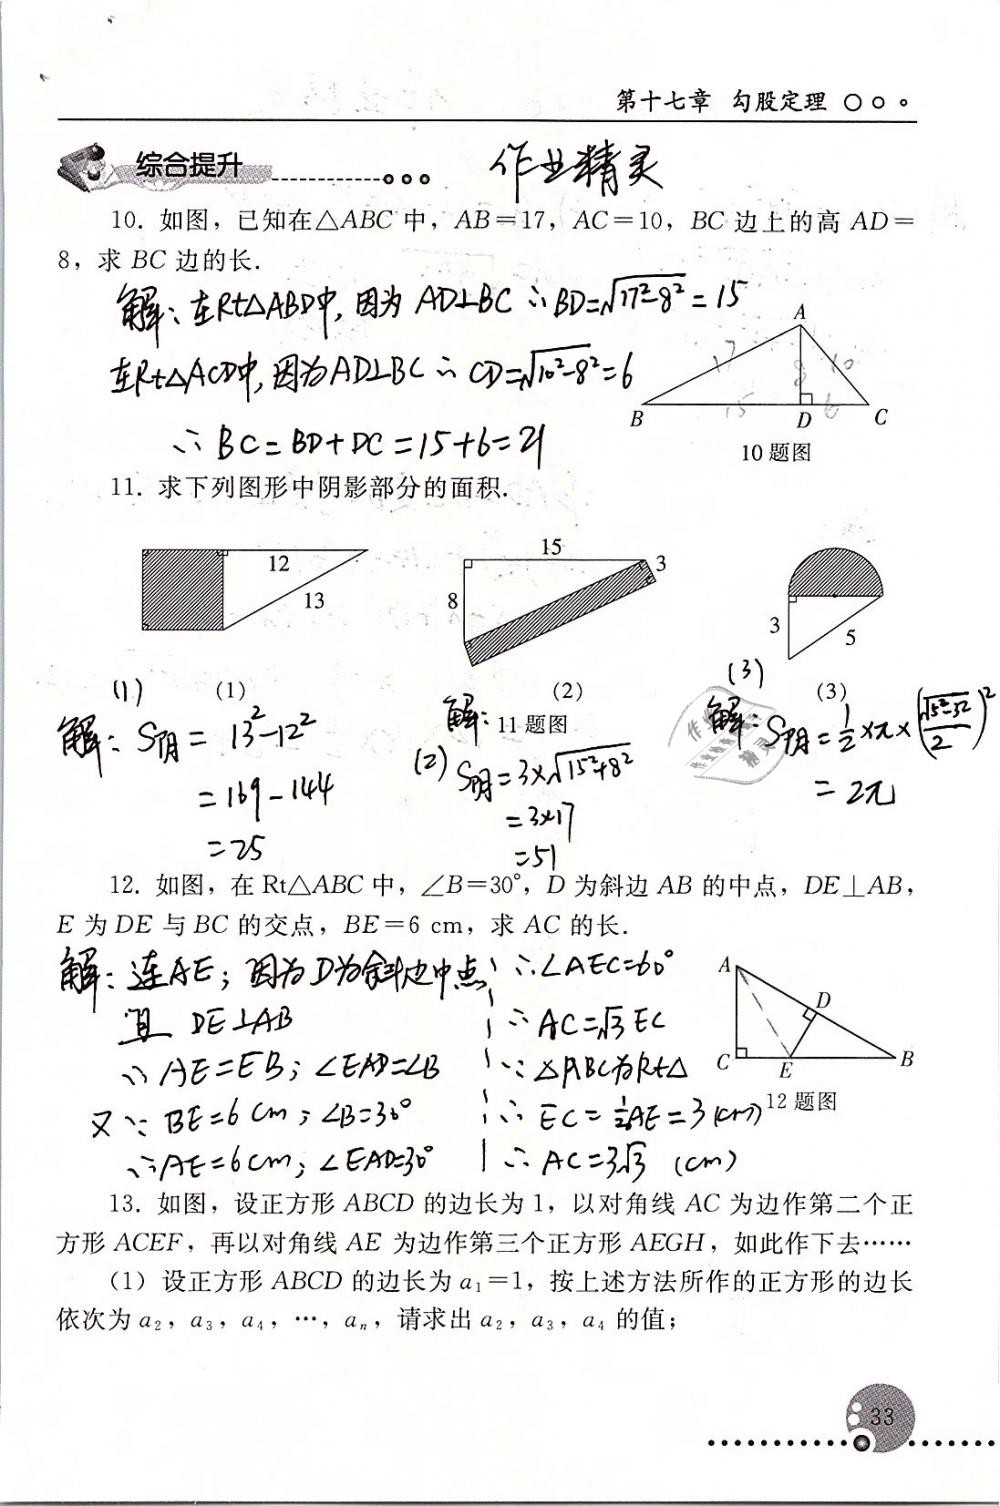 第十七章 勾股定理
综合提升
作业精灵
10. 如图，已知在△ABC 中，AB＝17，AC＝10，BC 边上的高 AD＝
8，求 BC 边的长.
解：在Rt△ABD中，因为 AD⊥BC ∴BD=√17²-8² = 15
在Rt△ACD中，因为AD⊥BC ∴ CD=√10²-8²=6
∴ BC = BD+DC = 15+6=21
A
17 8 10
B 15 D 6 C
10 题图
11. 求下列图形中阴影部分的面积.
12
13
15
3
8
3
5
(1) (1)
(2)
(3) (3)
11 题图
解：S阴 = 13²-12²
= 169-144
=25
解：
(2) S阴=3×√15²+8²
=3×17
=51
解：S阴 = 1/2 ×π×(√5²-3²/2)²
= 2π
作业
精灵
12. 如图，在 Rt△ABC 中，∠B＝30°，D 为斜边 AB 的中点，DE⊥AB，
E 为 DE 与 BC 的交点，BE＝6 cm，求 AC 的长.
解：连AE；因为D为斜边中点
且 DE⊥AB
∴ AE=EB；∠EAD=∠B
又∵ BE=6 cm；∠B=30°
∴AE=6cm；∠EAD=30°
∴∠AEC=60°
∴ AC=√3 EC
∵ △ABC为Rt△
∴ EC = 1/2AE = 3 (cm)
∴ AC=3√3 (cm)
A
D
C E B
12 题图
13. 如图，设正方形 ABCD 的边长为 1，以对角线 AC 为边作第二个正
方形 ACEF，再以对角线 AE 为边作第三个正方形 AEGH，如此作下去……
(1) 设正方形 ABCD 的边长为 a₁＝1，按上述方法所作的正方形的边长
依次为 a₂，a₃，a₄，…，aₙ，请求出 a₂，a₃，a₄ 的值；
33